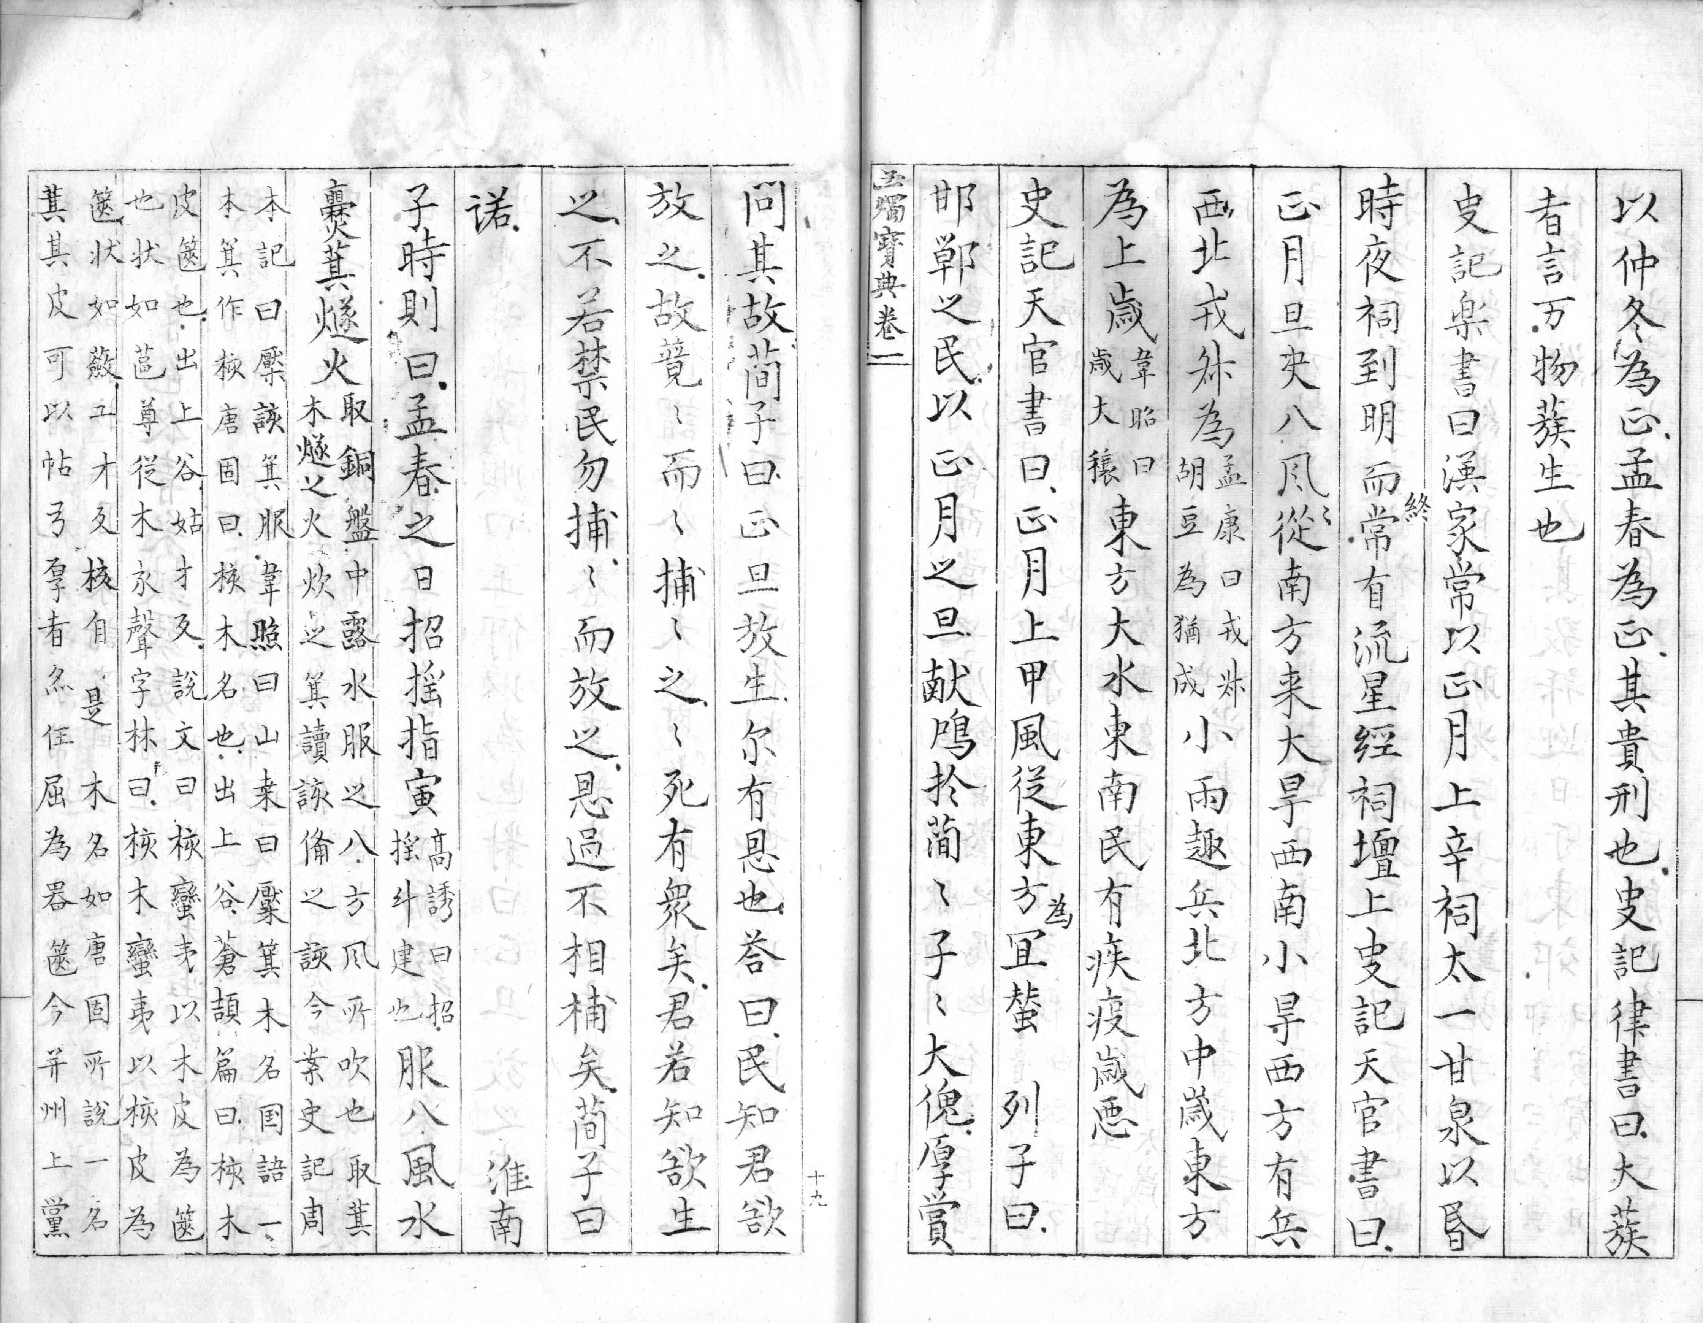 以仲冬為正孟春為正其貴刑也史記律書曰大蔟
者言万物蔟生也
史記楽書曰漢家常以正月上辛祠太一甘泉以昏
時夜祠到明而常有流星經祠壇上史記天官書曰
終
正月旦夬八風〻從南方来大旱西南小旱西方有兵
西北戎菽為孟康曰戎菽
胡豆為猶成小雨趣兵北方中歳東方
為上歳韋昭曰
歳大穰東方大水東南民有疾疫歳悪
史記天官書曰正月上甲風従東方冝蠶　列子曰
為
邯鄲之民以正月之旦献鳩於簡〻子〻大傀厚賞
玉燭寳典卷一
問其故簡子曰正旦放生尔有恩也答曰民知君欲
放之故競〻而〻捕〻之〻死有衆矣君若知欲生
之不若禁民勿捕〻而放之恩過不相補矣簡子曰
諾　淮南
子時則曰孟春之日招摇指寅高誘曰招
摇斗建也服八風水
爨萁燧火取銅盤中露水服之八方風所吹也取萁
木燧之火炊之箕讀該備之該今案史記周
本記曰檿該箕服韋照曰山桒曰檿箕木名国語一
本箕作核唐固曰核木名也出上谷蒼頡篇曰核木
皮篋也出上谷姑才反說文曰核蠻夷以木皮為篋
也状如莒尊従木亥聲字林曰核木蠻夷以核皮為
篋状如蔹工才反核自是木名如唐固所說一名
萁其皮可以帖弓厚者尓任屈為器篋今并州上黨
十九